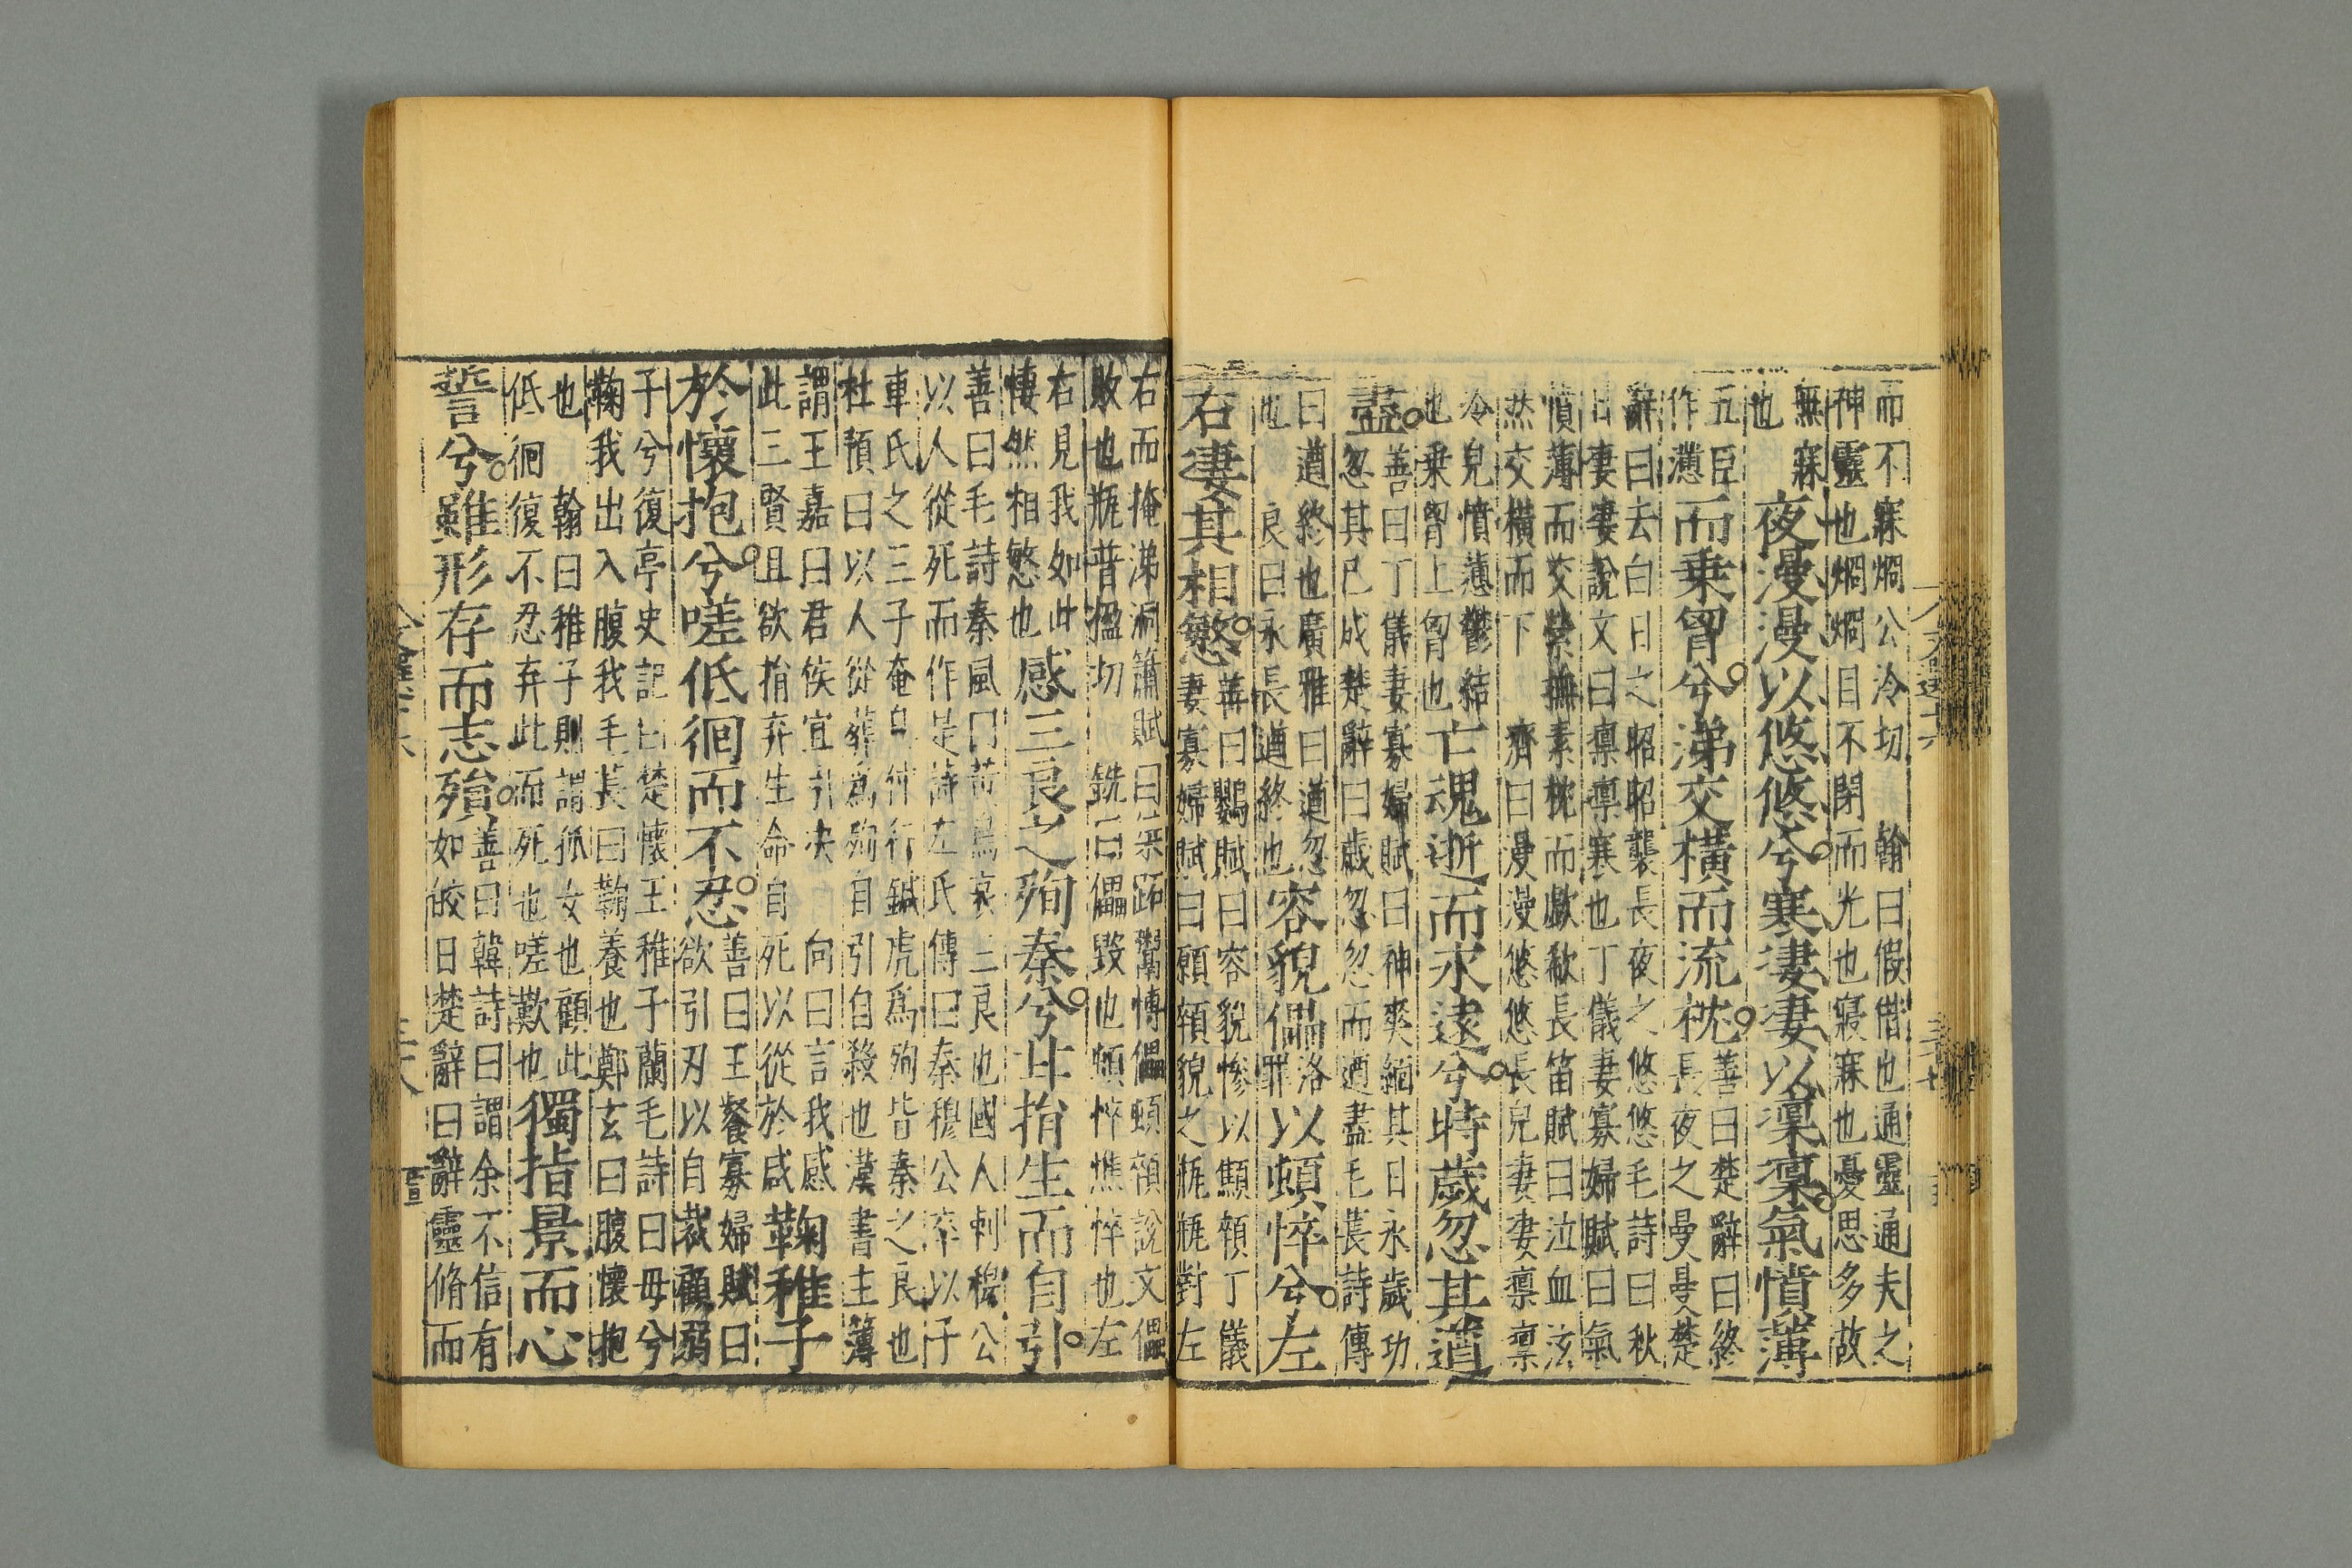 而不寐烱公泠切　翰曰假借也通靈通夫之
神靈也烱烱目不閉而光也寢寐也憂思多故
無寐
也
夜漫漫以悠悠兮寒淒淒以凜凜氣憤薄
五臣
作懣
而乗胷兮涕交橫而流枕
善曰楚辭曰終
長夜之曼曼楚
辭曰去白日之昭昭襲長夜之悠悠毛詩曰秋
日淒淒說文曰凜凜寒也丁儀妻寡婦賦曰氣
憤薄而交縈撫素枕而歔欷長笛賦曰泣血泫
然交橫而下　濟曰漫漫悠悠長皃淒淒凜凜
冷皃憤懣鬱結
也乗胷上胷也
亡魂逝而永遠兮時歲忽其遒
盡
善曰丁儀妻寡婦賦曰神爽緬其日永歲功
忽其已成楚辭曰歲忽忽而遒盡毛萇詩傳
曰遒終也廣雅曰遒忽
也　良曰永長遒終也
容貌儡
洛
罪
以頓悴兮左
右淒其相慜
善曰鸚賦曰容貌慘以顦顇丁儀
妻寡婦賦曰顧顇貌之瓶瓶對左
右而掩涕洞簫賦曰桀跖鬻博儡頓顇說文儡
敗也瓶普搵切　銑曰儡毀也頓悴憔悴也左
右見我如此
悽然相慜也
感三良之殉秦兮甘捐生而自引
善曰毛詩秦風曰黃鳥哀三良也國人刺穆公
以人從死而作是詩左氏傳曰秦穆公卒以子
車氏之三子奄息仲行鍼虎爲殉皆秦之良也
杜預曰以人從葬爲殉自引自殺也漢書主薄
謂王嘉曰君侯宜引決　向曰言我感
此三賢且欲捐弃生命自死以從於咸
鞠稚子
於懷抱兮嗟低徊而不忍
善曰王粲寡婦賦曰
欲引刃以自裁顧弱
子兮復停史記曰楚懷王稚子蘭毛詩曰母兮
鞠我出入腹我毛萇曰鞠養也鄭玄曰腹懷抱
也　翰曰稚子則謂孤女也顧此
低徊復不忍弃此而死也嗟歎也
獨指景而心
誓兮雖形存而志殞
善曰韓詩曰謂余不信有
如皎日楚辭曰辭靈脩而